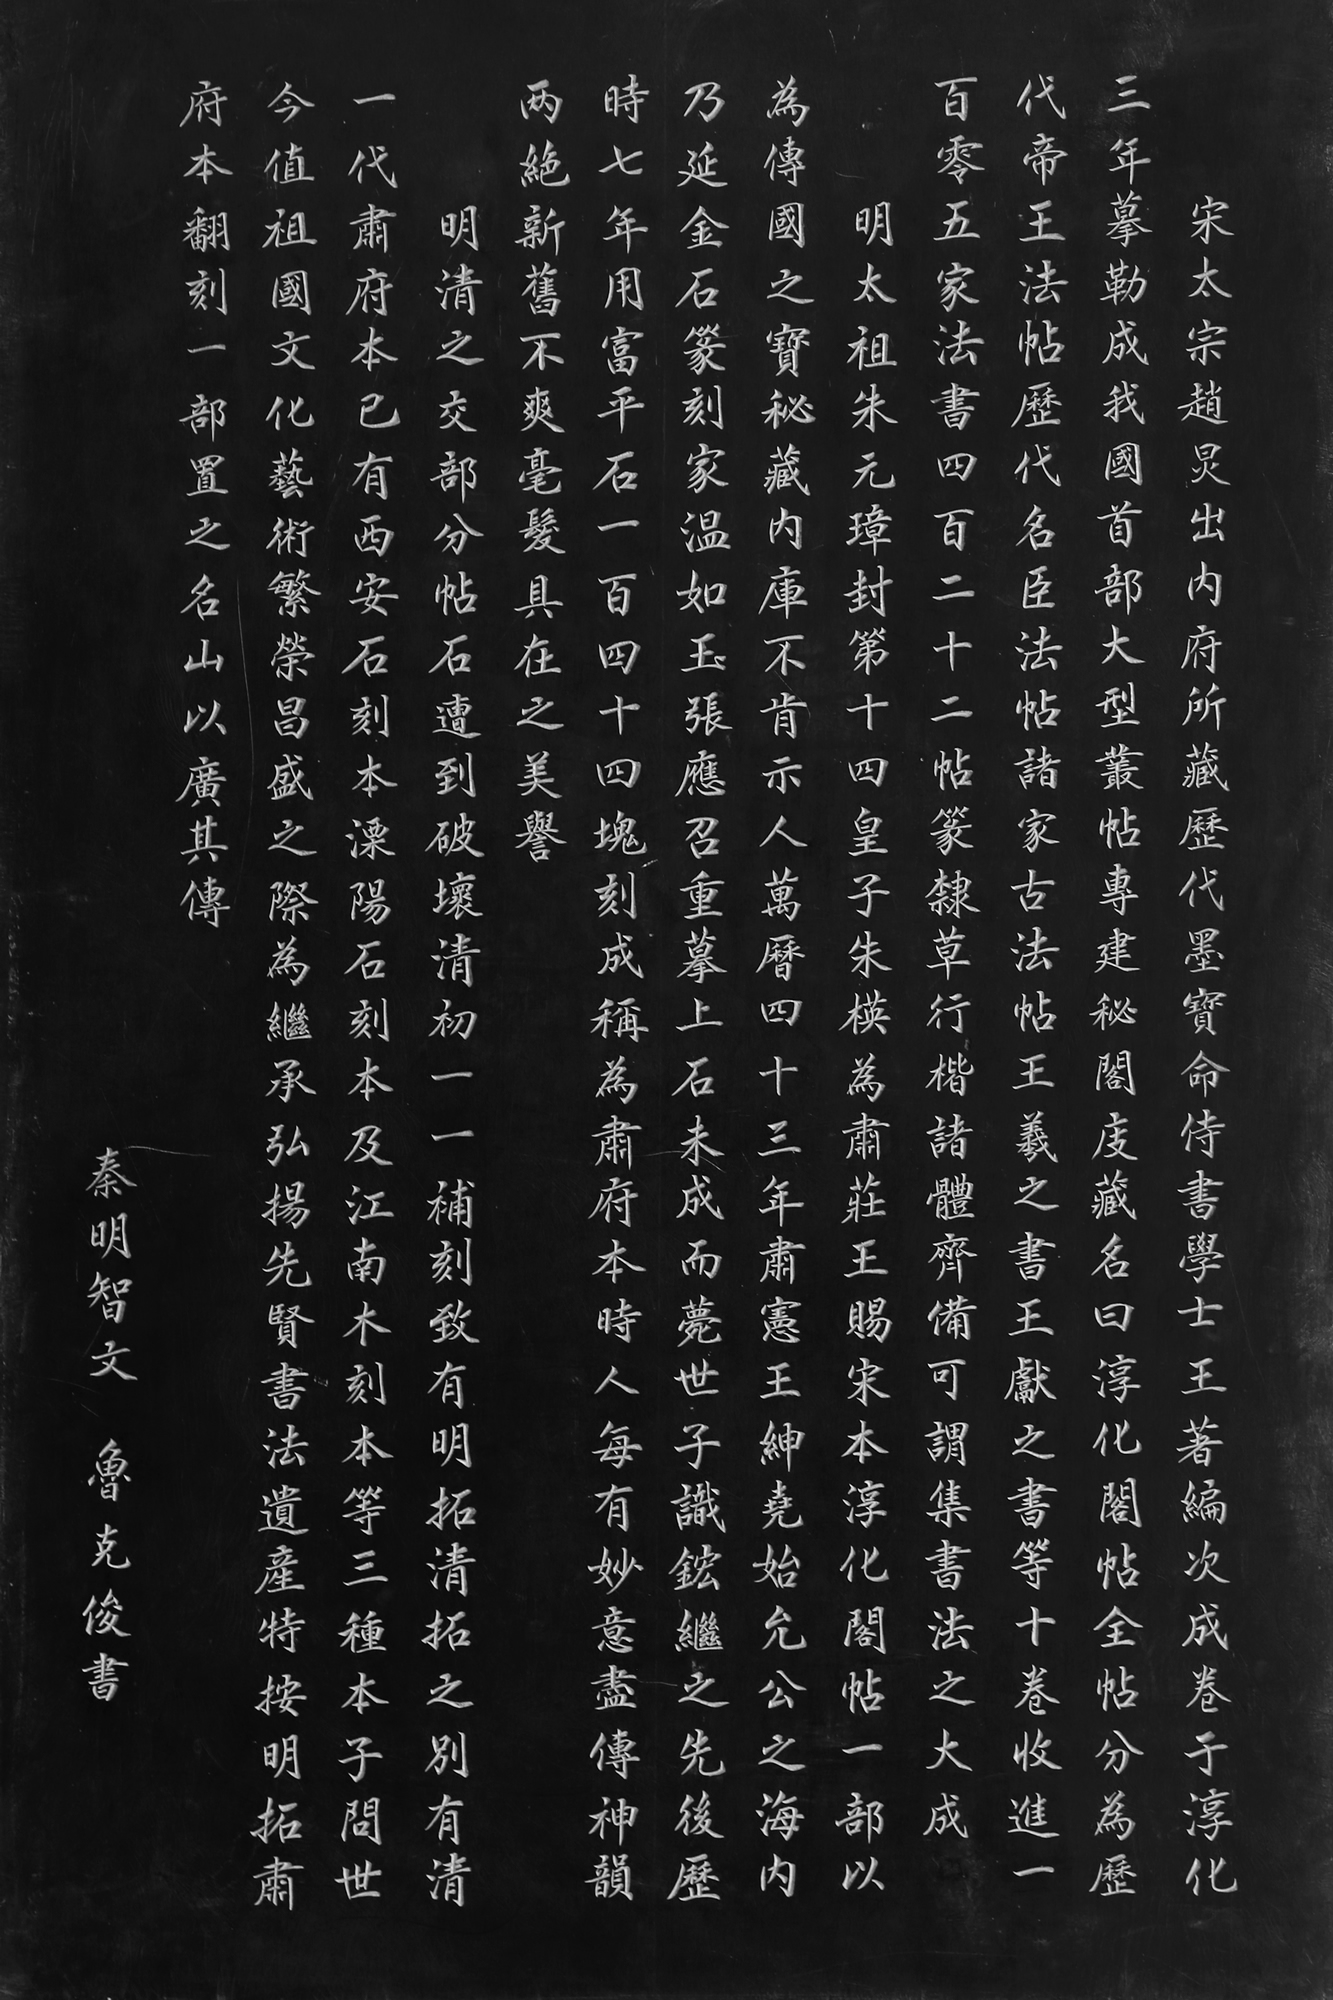 宋太宗趙炅出内府所藏歷代墨寶命侍書學士王著編次成卷于淳化
三年摹勒成我國首部大型叢帖專建秘閣庋藏名曰淳化閣帖全帖分為歷
代帝王法帖歷代名臣法帖諸家古法帖王羲之書王獻之書等十卷收進一
百零五家法書四百二十二帖篆隸草行楷諸體齊備可謂集書法之大成
明太祖朱元璋封第十四皇子朱楧為肅莊王賜宋本淳化閣帖一部以
為傳國之寶秘藏内庫不肯示人萬曆四十三年肅憲王紳堯始允公之海内
乃延金石篆刻家温如玉張應召重摹上石未成而薨世子識鋐繼之先後歷
時七年用富平石一百四十四塊刻成稱為肅府本時人每有妙意盡傳神韻
两絶新舊不爽毫髮具在之美譽
明清之交部分帖石遭到破壞清初一一補刻致有明拓清拓之別有清
一代肅府本已有西安石刻本溧陽石刻本及江南木刻本等三種本子問世
今值祖國文化藝術繁榮昌盛之際為繼承弘揚先賢書法遺產特按明拓肅
府本翻刻一部置之名山以廣其傳
秦明智文 魯克俊書